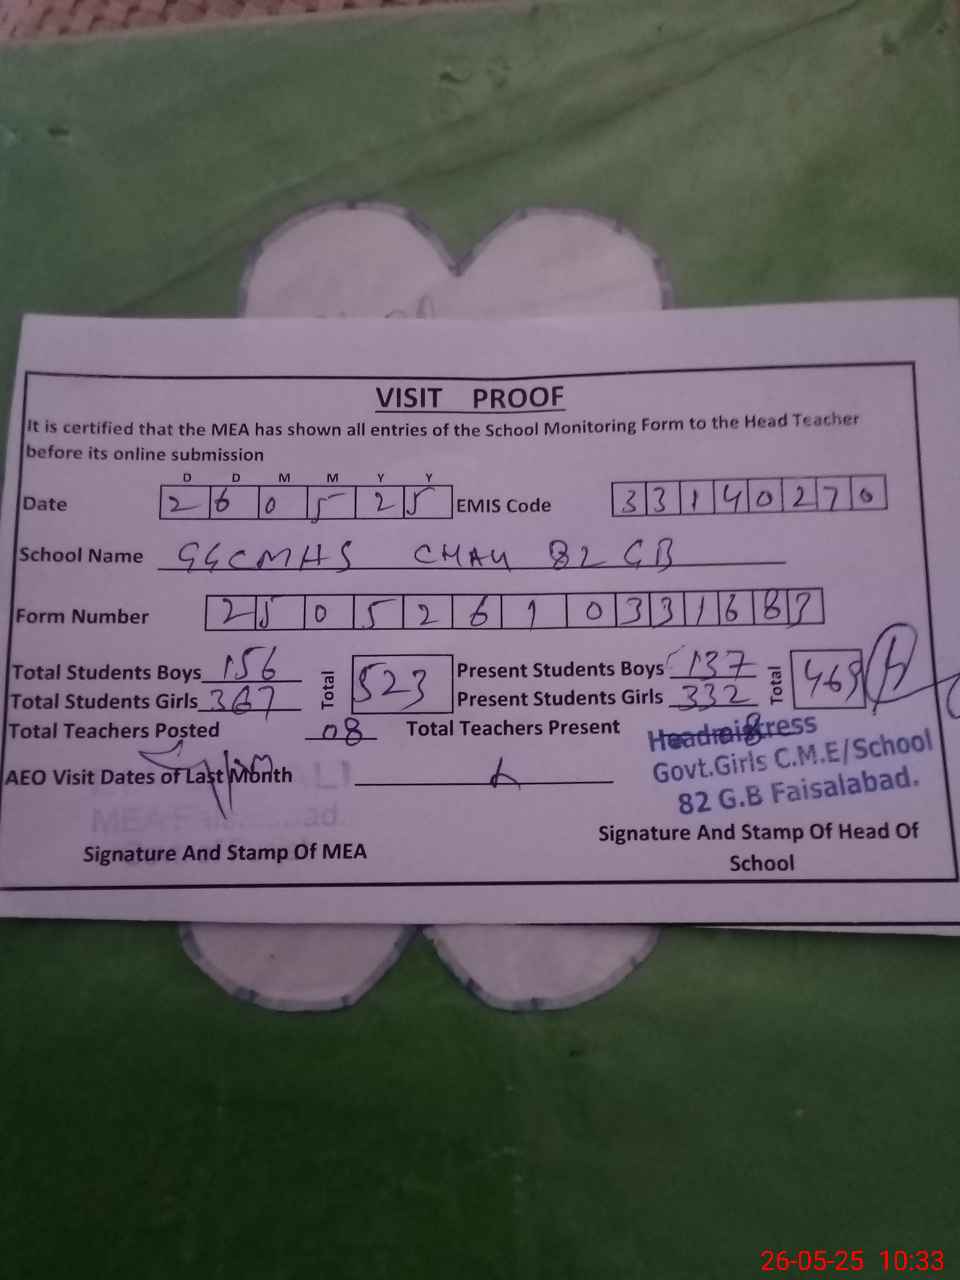 VISIT PROOF
It is certified that the MEA has shown all entries of the School Monitoring Form to the Head Teacher
before its online submission
D D M M Y Y
Date 2 6 0 5 2 5 EMIS Code 3 3 1 4 0 2 7 0
School Name GGCMHS CHAK 82 GB
Form Number 2 5 0 5 2 6 1 0 3 3 1 6 8 3
Total Students Boys 156 Total 523 Present Students Boys 137 Total 469
Total Students Girls 367 Present Students Girls 332
Total Teachers Posted 08 Total Teachers Present 8
Headmistress
Govt.Girls C.M.E/School
82 G.B Faisalabad.
AEO Visit Dates of Last Month
Signature And Stamp Of MEA
Signature And Stamp Of Head Of
School
26-05-25 10:33